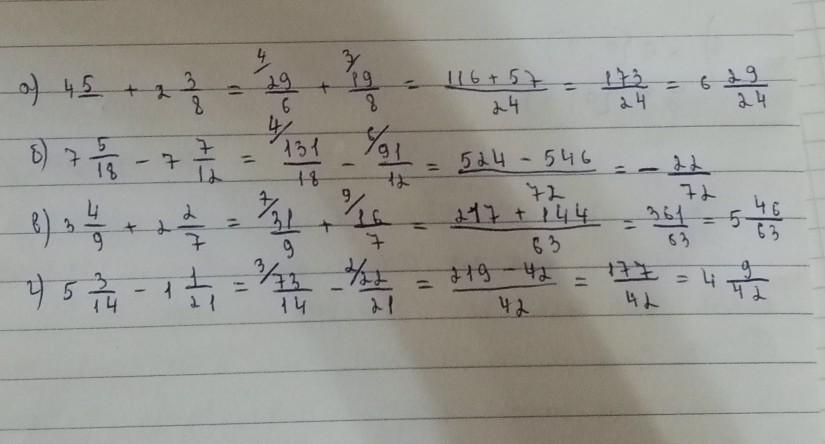 а) 4 5/ + 2 3/8 = 4/ 29/6 + 3/ 19/8 = 116 + 57/24 = 173/24 = 6 29/24
б) 7 5/18 - 7 7/12 = 4/ 131/18 - 6/ 91/12 = 524 - 546/72 = - 22/72
в) 3 4/9 + 2 2/7 = 7/ 31/9 + 9/ 16/7 = 217 + 144/63 = 361/63 = 5 46/63
г) 5 3/14 - 1 1/21 = 3/ 73/14 - 2/ 22/21 = 219 - 42/42 = 177/42 = 4 9/42